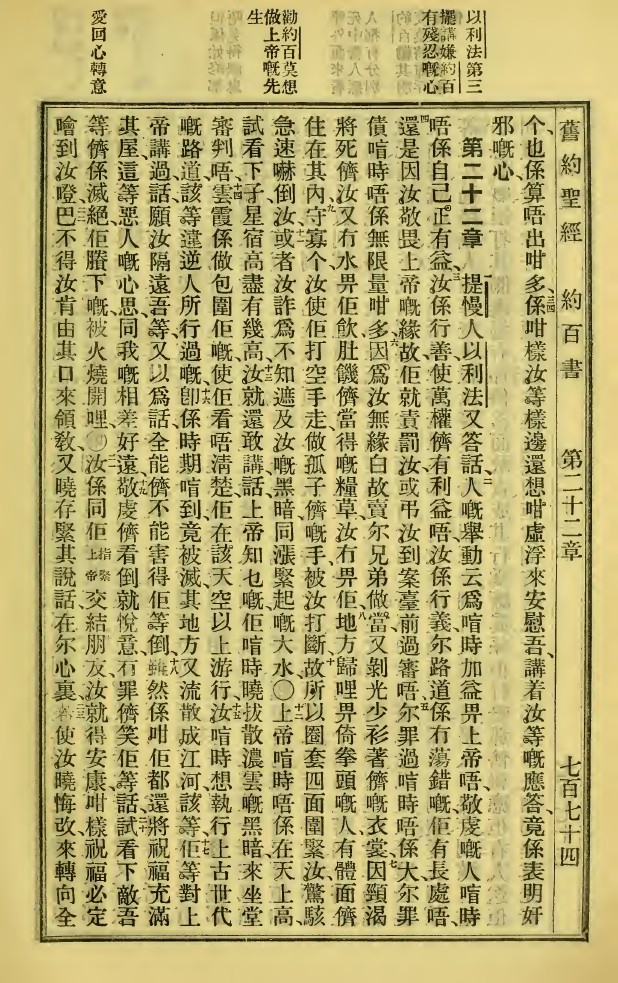 以利法第三
擺講嫌約百
有殘忍嘅心
勸約百莫想
做上帝嘅先
生
愛回心轉意
舊約聖經 約百書 第二十二章 七百七十四
个也係算唔出咁多係咁樣汝等樣邊還想咁虛浮來安慰吾講着汝等嘅應答竟係表明奸
邪嘅心
第二十二章 提慢人以利法又答話人嘅舉動云爲㗒時加益畀上帝唔敬虔嘅人㗒時
唔係自己正有益汝係行善使萬權儕有利益唔汝係行義尔路道係冇蕩錯嘅佢有長處唔
還是因汝敬畏上帝嘅緣故佢就責罰汝或弔汝到案臺前過審唔尔罪過㗒時唔係大尔罪
債㗒時唔係無限量咁多因爲汝無緣白故賣尔兄弟做當又剝光少衫著儕嘅衣裳因頸渴
將死儕汝又冇水畀佢飲肚饑儕當得嘅糧草汝冇畀佢地方歸哩畀倚拳頭嘅人有體面儕
住在其內守寡个汝使佢打空手走做孤子儕嘅手被汝打斷故所以圈套四面圍緊汝驚駭
急速嚇倒汝或者汝詐爲不知遮及汝嘅黑暗同漲緊起嘅大水〇上帝㗒時唔係在天上高
試看下子星宿高盡有幾高汝就還敢講話上帝知乜嘅佢㗒時曉拔散濃雲嘅黑暗來坐堂
審判唔雲霞係做包圍佢嘅使佢看唔清楚佢在該天空以上游行汝㗒時想執行上古世代
嘅路道該等違逆人所行過嘅卽係時期㗒到竟被滅其地方又流散成江河該等佢等對上
帝講過話願汝隔遠吾等又以爲話全能儕不能害得佢等倒雖然係咁佢都還將祝福充滿
其屋這等惡人嘅心思同我嘅相差好遠敬虔儕看倒就悅意冇罪儕笑佢等話試看下敵吾
等儕係滅絕佢賸下嘅被火燒開哩〇汝係同佢指緊上帝交結朋友汝就得安康咁樣祝福必定
噲到汝噔巴不得汝肯由其口來領敎又曉存緊其說話在尔心裏使汝曉悔改來轉向全